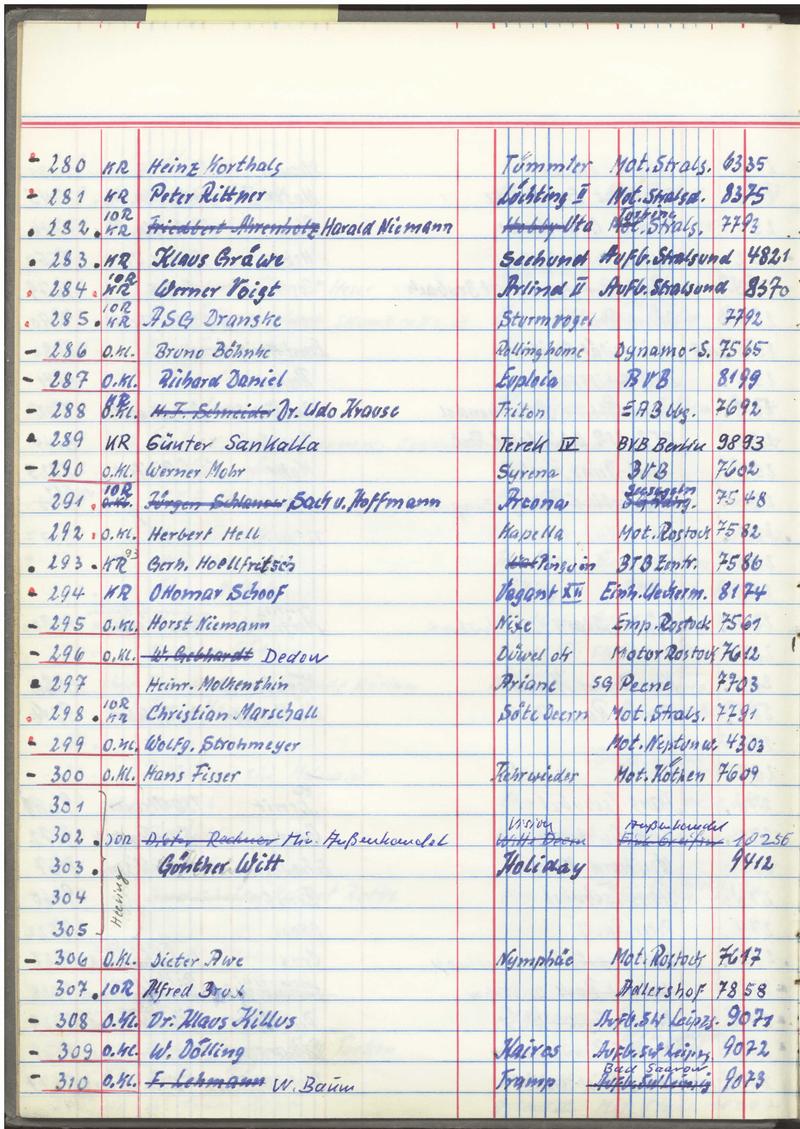 - 280 KR Heinz Korthals Tümmler Mot. Strals. 6335
- 281 KR Peter Rittner Löchting II Mot. Stralsd. 8375
. 282. 10R KR Friedbert Ahrenholz Harald Niemann Hobby Uta Mot. Strals. 7793
. 283. KR Klaus Gräwe Seehund Aufb. Stralsund 4821
. 284. 10R KR Werner Voigt Arlind II Aufb. Stralsund 8370
. 285. 10R KR ASG Dranske Sturmvogel 7792
- 286 O.Kl. Bruno Böhnke Rollinghome Dynamo-S. 7565
- 287 O.Kl. Richard Daniel Euploia BVB 8199
- 288 KR O.Kl. H.J. Schneider Dr. Udo Krause Triton EAB Wg. 7692
. 289 KR Günter Sankalla Terek IV BVB Berlin 9893
- 290 O.Kl. Werner Mohr Syrena BVB 7602
291. 10R O.Kl. Jürgen Schlanow Bach u. Hoffmann Arcona 7548
292. O.Kl. Herbert Hell Kapella Mot. Rostock 7582
. 293. KR 93 Gerh. Hoellfritsch Pinguin BTB Zentr. 7586
- 294 KR Ottomar Schoof Vagant XVI Einh. Ueckerm. 8174
- 295 O.Kl. Horst Niemann Nixe Emp. Rostock 7561
- 296 O.Kl. W. Gebhardt Dedow Düwel ok Motor Rostock 7612
. 297 Heinr. Molkenthin Ariane SG Peene 7703
. 298. 10R KR Christian Marschall Söte Deern Mot. Strals. 7791
- 299 O.Kl. Wolfg. Strohmeyer Mot. Neptunw. 4303
- 300 O.Kl. Hans Fisser Kehrwieder Mot. Köthen 7609
301
302. 10R Dieter Rechner Min. Außenhandel Vision Witte Deern Außenhandel 10256
303. Günther Witt Holiday 9412
304 Heering
305
- 306 O.Kl. Dieter Awe Nymphäe Mot. Rostock 7617
307. 10R Alfred Adlershof 7858
- 308 O.Kl. Dr. Klaus Killus Aufb. SW Leipz. 9071
- 309 O.Kl. W. Dölling Kairos Aufb. SW Leipzig 9072
- 310 O.Kl. F. Lehmann W. Baum Tramp Bad Saarow Aufb. SW Leipzig 9073